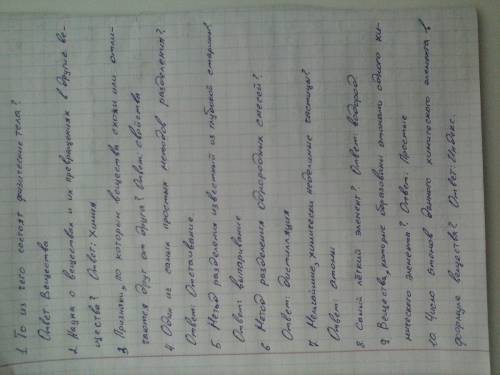 1. То из чего состоят физические тела?
Ответ: Вещества
2. Наука о веществах и их превращениях в другие ве-
щества? Ответ: Химия
3. Признаки, по которым вещества схожи или отли-
чаются друг от друга? Ответ: свойства
4. Один из самых простых методов разделения?
Ответ: Отстаивание
5. Метод разделения известный из глубокой старины?
Ответ: выпаривание
6. Метод разделения однородных смесей?
Ответ: дистилляция
7. Мельчайшие, химически неделимые частицы?
Ответ: атомы
8. Самый лёгкий элемент? Ответ: водород
9. Вещества, которые образованы атомами одного хи-
мического элемента? Ответ: Простые
10. Число атомов данного химического элемента в
формуле вещества? Ответ: Индекс.